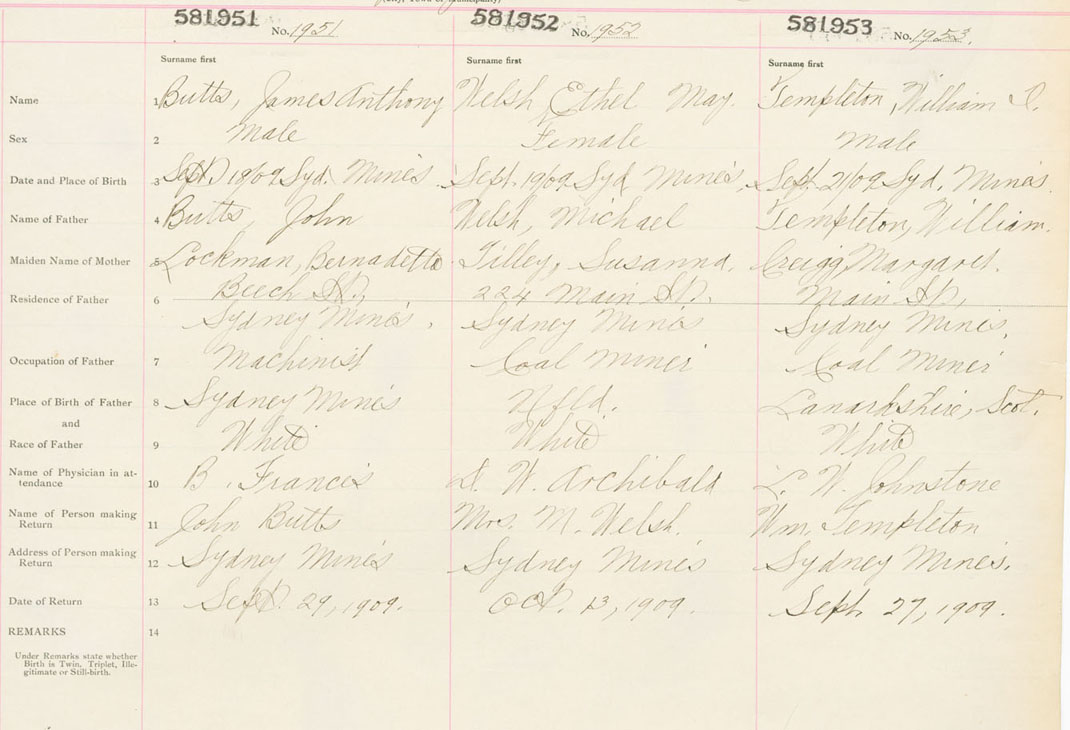 581951 581952 581953
No. 1951 No. 1952 No. 1953.
Surname first Surname first Surname first
Name 1 Butts, James Anthony Welsh, Ethel May. Templeton, William
Sex 2 Male Female Male
Date and Place of Birth 3 Sept 18/09 Syd. Mines Sept. 19/09 Syd Mines, Sept. 21/09 Syd. Mines.
Name of Father 4 Butts, John Welsh, Michael Templeton, William.
Maiden Name of Mother 5 Lockman, Bernadette Tilley, Susanna. Creigg, Margaret.
Beech St, 224 Main St. Main St,
Residence of Father 6
Sydney Mines. Sydney Mines Sydney Mines,
Occupation of Father 7 Machinist Coal Miner Coal Miner
Place of Birth of Father 8 Sydney Mines Nfld. Lanarkshire, Scot.
and
Race of Father 9 White White White
Name of Physician in at-
tendance 10 B. Francis W. Archibald L. W. Johnstone
Name of Person making
Return 11 John Butts Mrs. M. Welsh. Wm. Templeton
Address of Person making
Return 12 Sydney Mines Sydney Mines Sydney Mines.
Date of Return 13 Sept. 29, 1909. Oct. 13, 1909. Sept. 27, 1909.
REMARKS 14
Under Remarks state whether
Birth is Twin, Triplet, Ille-
gitimate or Still-birth.